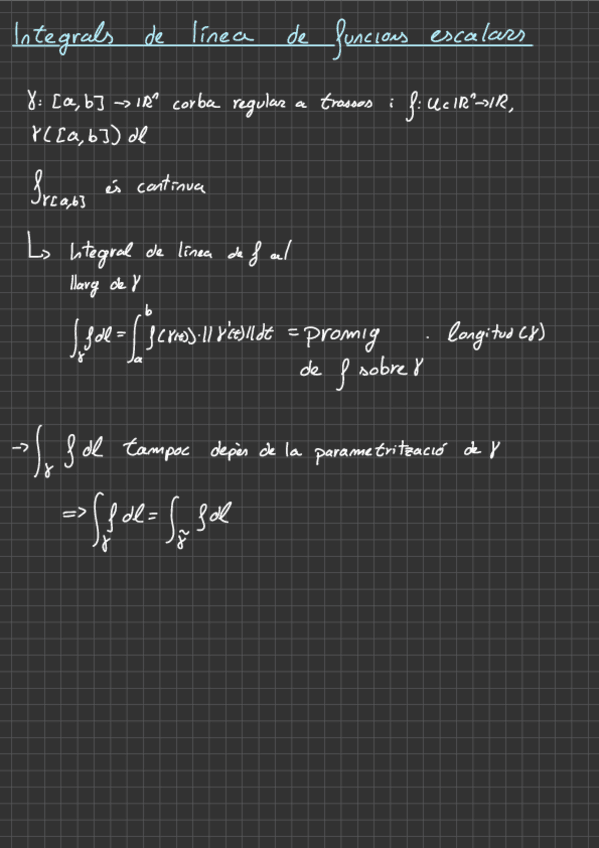 Integrals de línea de funcions escalars
γ: [a,b] → ℝⁿ corba regular a trossos i f: U⊂ℝⁿ→ℝ,
γ([a,b]) dl
f_γ[a,b] és contínua
↳ Integral de línea de f al
llarg de γ
∫_γ f dl = ∫_a^b f(γ(t))·||γ'(t)||dt = promig · longitud(γ)
de f sobre γ
→ ∫_γ f dl tampoc depèn de la parametrització de γ
=> ∫_γ f dl = ∫_γ̃ f dl